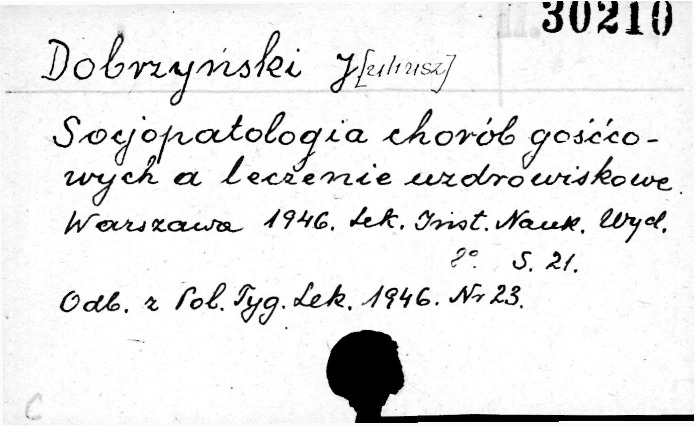 30210
Dobrzyński J[uliusz]
Socjopatologia chorób gośćco-
wych a leczenie uzdrowiskowe.
Warszawa 1946. Lek. Inst. Nauk. Wyd.
8° S. 21.
Odb. z Pol. Tyg. Lek. 1946. Nr 23.
C